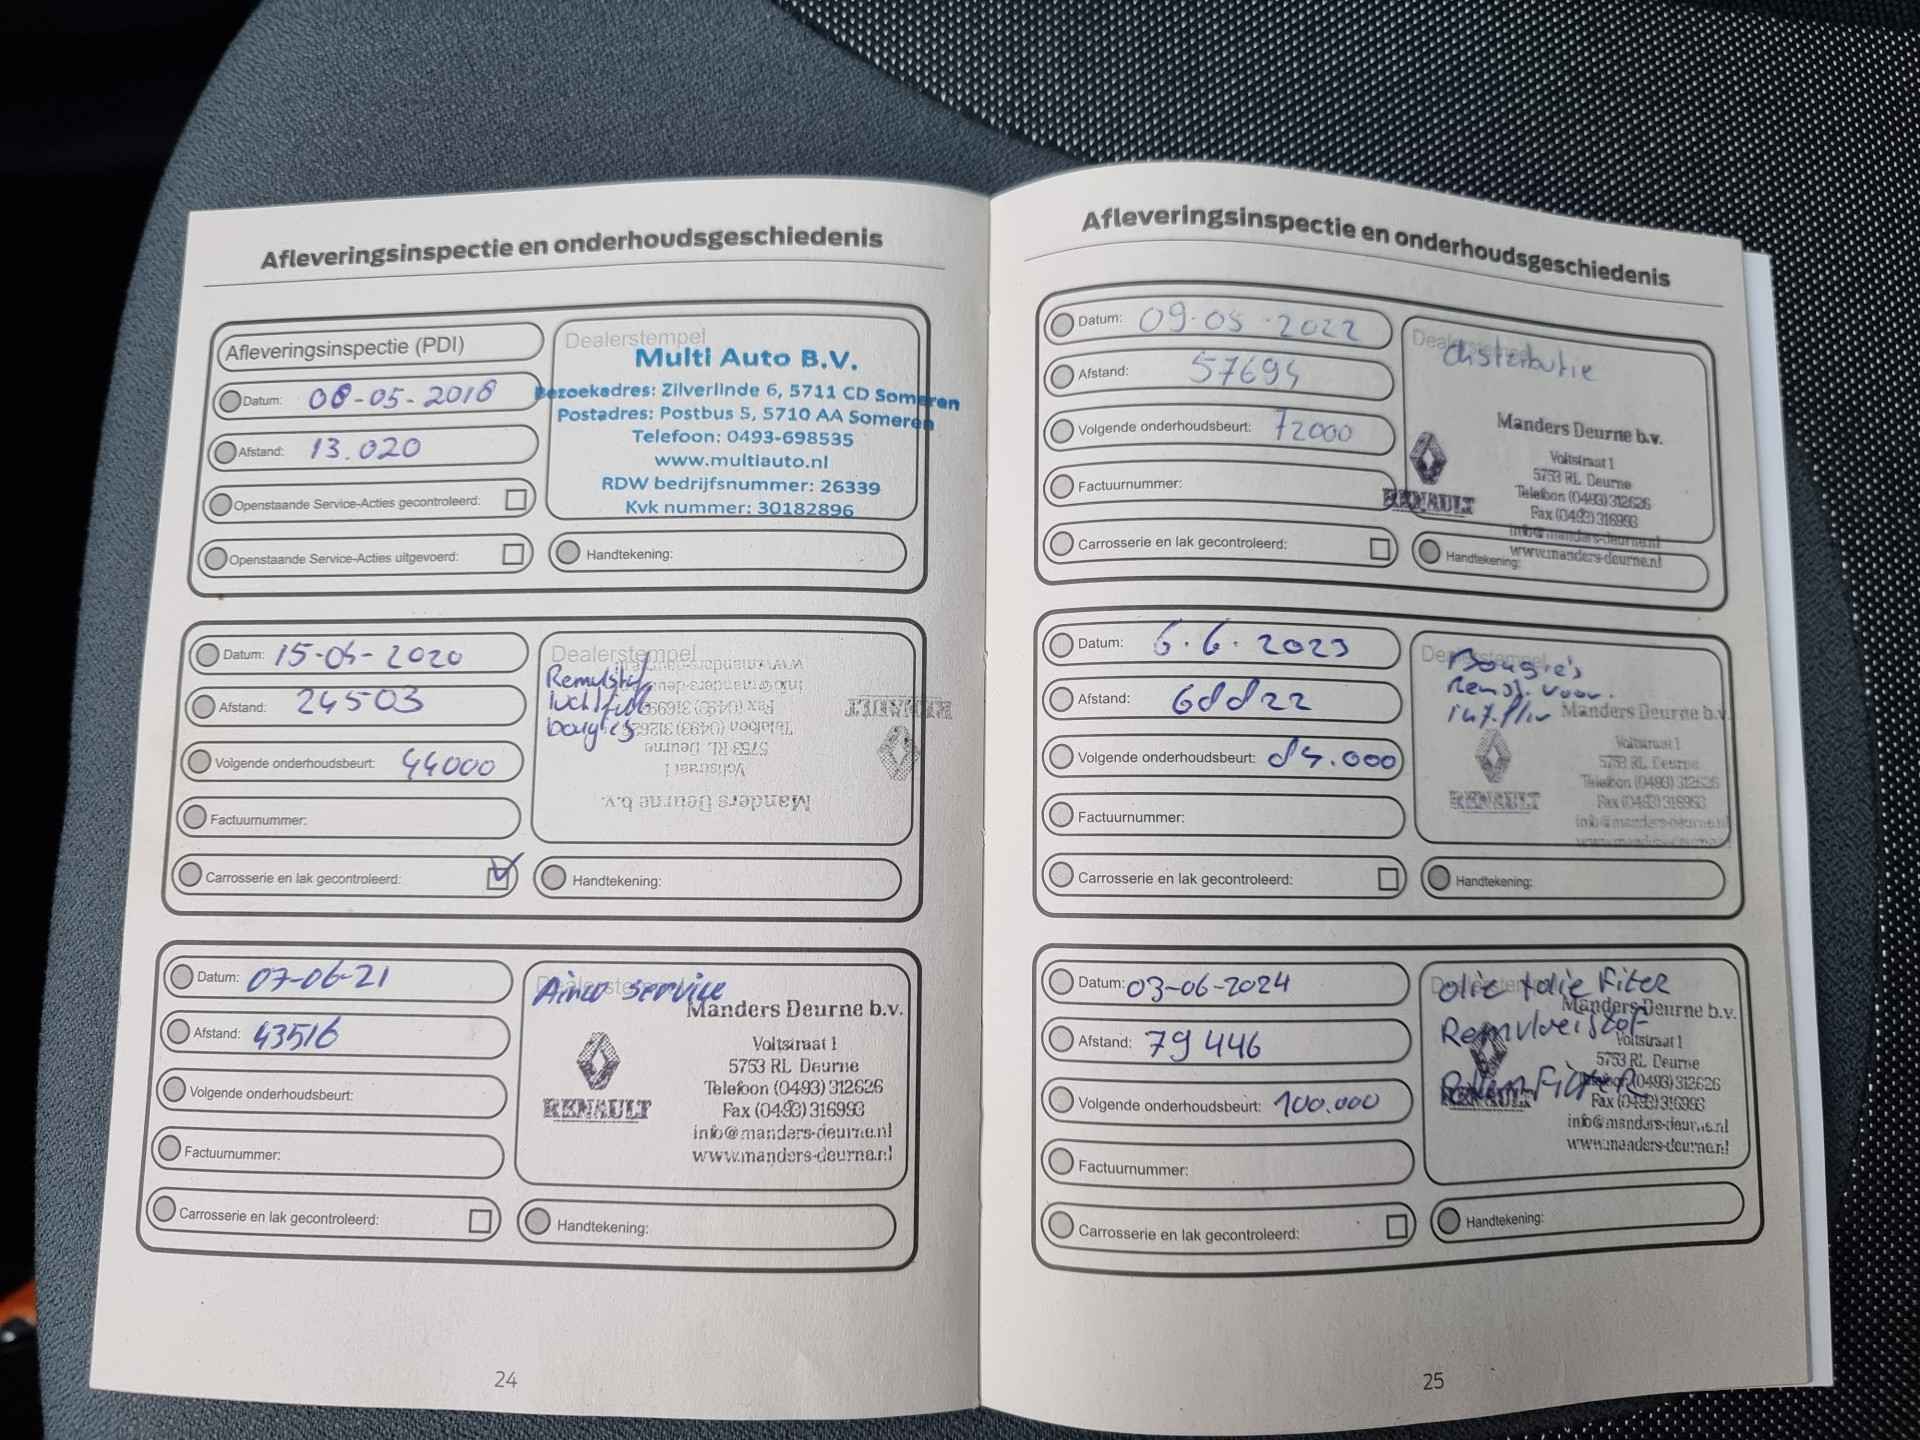 Afleveringsinspectie en onderhoudsgeschiedenis
Afleveringsinspectie (PDI)
Datum: 08-05-2018
Afstand: 13.020
Openstaande Service-Acties gecontroleerd:
Openstaande Service-Acties uitgevoerd:
Dealerstempel
Multi Auto B.V.
Bezoekadres: Zilverlinde 6, 5711 CD Someren
Postadres: Postbus 5, 5710 AA Someren
Telefoon: 0493-698535
www.multiauto.nl
RDW bedrijfsnummer: 26339
Kvk nummer: 30182896
Handtekening:
Datum: 15-05-2020
Afstand: 24503
Volgende onderhoudsbeurt: 44000
Factuurnummer:
Carrosserie en lak gecontroleerd:
Dealerstempel
Remvlst
luchtfilt
bougies
Manders Deurne b.v.
Voltstraat 1
5753 RL Deurne
Telefoon (0493) 312626
Fax (0493) 316993
info@manders-deurne.nl
www.manders-deurne.nl
RENAULT
Handtekening:
Datum: 07-06-21
Afstand: 43516
Volgende onderhoudsbeurt:
Factuurnummer:
Carrosserie en lak gecontroleerd:
Airco service
Manders Deurne b.v.
Voltstraat 1
5753 RL Deurne
Telefoon (0493) 312626
Fax (0493) 316993
info@manders-deurne.nl
www.manders-deurne.nl
RENAULT
Handtekening:
24
Afleveringsinspectie en onderhoudsgeschiedenis
Datum: 09-05-2022
Afstand: 57694
Volgende onderhoudsbeurt: 72000
Factuurnummer:
Carrosserie en lak gecontroleerd:
distributie
Manders Deurne b.v.
Voltstraat 1
5753 RL Deurne
Telefoon (0493) 312626
Fax (0493) 316993
info@manders-deurne.nl
www.manders-deurne.nl
RENAULT
Handtekening:
Datum: 6.6.2023
Afstand: 68822
Volgende onderhoudsbeurt: 84.000
Factuurnummer:
Carrosserie en lak gecontroleerd:
Bougie's
Remsl. voor.
int.fltr
Manders Deurne b.v.
Voltstraat 1
5753 RL Deurne
Telefoon (0493) 312626
Fax (0493) 316993
info@manders-deurne.nl
www.manders-deurne.nl
RENAULT
Handtekening:
Datum: 03-06-2024
Afstand: 79446
Volgende onderhoudsbeurt: 100.000
Factuurnummer:
Carrosserie en lak gecontroleerd:
olie + olie Filter
Remvloeistof
Pollen Filter
Manders Deurne b.v.
Voltstraat 1
5753 RL Deurne
(0493) 312626
Fax (0493) 316993
info@manders-deurne.nl
www.manders-deurne.nl
Handtekening:
25